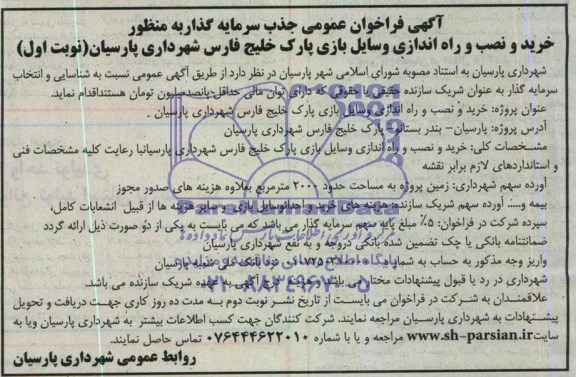 آگهی فراخوان عمومی جذب سرمایه گذار به منظور
خرید و نصب و راه اندازی وسایل بازی پارک خلیج فارس شهرداری پارسیان (نوبت اول)
شهرداری پارسیان به استناد مصوبه شورای اسلامی شهر پارسیان در نظر دارد از طریق آگهی عمومی نسبت به شناسایی و انتخاب
سرمایه گذار به عنوان شریک سازنده حقیقی یا حقوقی که دارای توان مالی حداقل پانصدمیلیون تومان هستنداقدام نماید.
عنوان پروژه: خرید و نصب و راه اندازی وسایل بازی پارک خلیج فارس شهرداری پارسیان .
آدرس پروژه: پارسیان– بندر بستانو– پارک خلیج فارس شهرداری پارسیان
مشخصات کلی: خرید و نصب و راه اندازی وسایل بازی پارک خلیج فارس شهرداری پارسیانبا رعایت کلیه مشخصات فنی
و استانداردهای لازم برابر نقشه
آورده سهم شهرداری: زمین پروژه به مساحت حدود ۲۰۰۰ مترمربع بعلاوه هزینه های صدور مجوز
بیمه و.... آورده سهم شریک سازنده: هزینه های خرید و احداثوسایل بازی و سایر هزینه ها از قبیل انشعابات کامل،
سپرده شرکت در فراخوان: ۵٪ مبلغ پایه سهم سرمایه گذار می باشد که می بایست به یکی از دو صورت ذیل ارائه گردد
ضمانتنامه بانکی یا چک تضمین شده بانکی دروجه و به نفع شهرداری پارسیان
واریز وجه مذکور به حساب شماره نزد بانک ملی شعبه پارسیان
شهرداری در رد یا قبول پیشنهادات مختار می باشد و هزینه درج آگهی به عهده شریک سازنده می باشد.
علاقمندان به شرکت در فراخوان می بایست از تاریخ نشر نوبت دوم به مدت ده روز کاری جهت دریافت و تحویل
پیشنهادات به شهرداری پارسیان مراجعه نمایند. شرکت کنندگان جهت کسب اطلاعات بیشتر به شهرداری پارسیان ویا به
سایت www.sh-parsian.ir مراجعه و یا با شماره ۰۷۶۴۴۴۶۲۲۰۱۰ تماس حاصل نمایند.
روابط عمومی شهرداری پارسیان